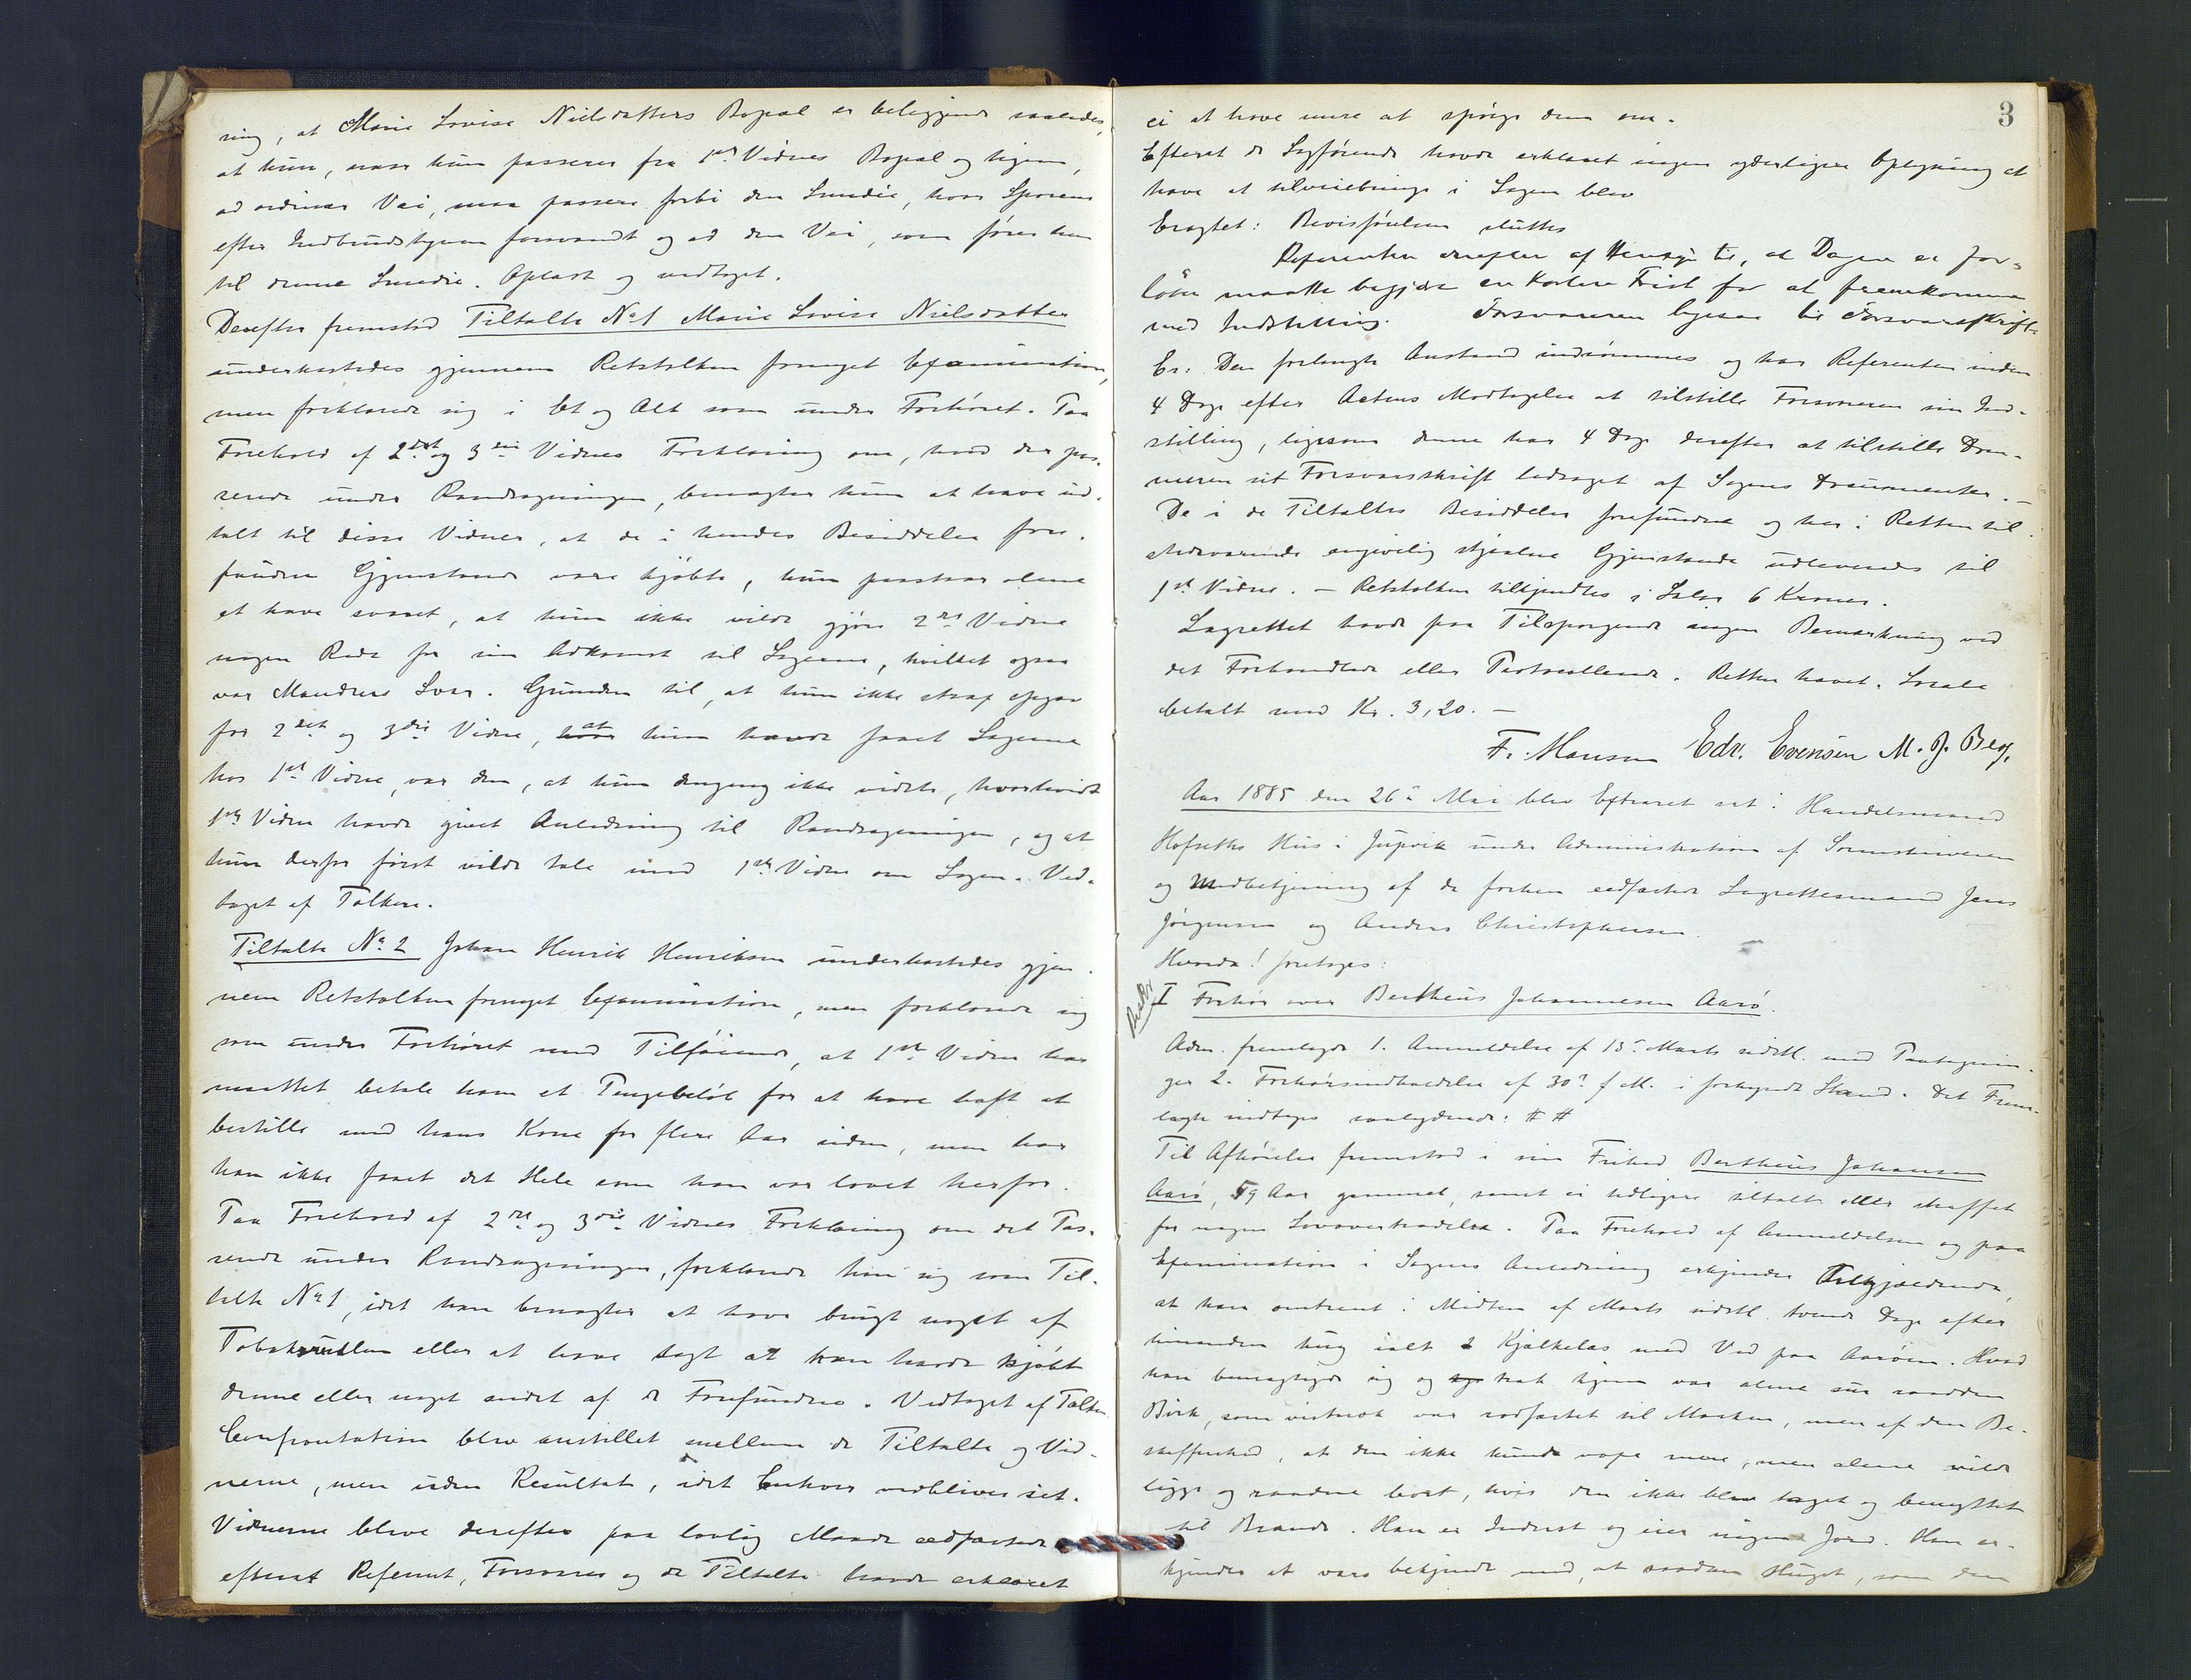 ning, at Marie Lovise Nielsdatters Bopæl er beliggende saaledes,
at hun, naar hun passerer fra 1ste Vidnes Bopæl og hjem,
ad ordinær Vei, maa passere forbi den Smedie, hvor Sporene
efter Indbrudstyven forsvandt og ad den Vei, som fører hen
til denne Smedie. Oplæst og vedtaget.
Derefter fremstod Tiltalte No 1 Marie Lovise Nielsdatter
underkastedes gjennem Retstolken fornyet Examination,
men forklarede sig i Et og Alt som under Forhøret. Paa
Forehold af 2det og 3die Vidnes Forklaring om, hvad der pas-
serede under Randsagningen, benægter hun at have ud-
talt til disse Vidner, at de i hendes Besiddelse fore-
fundne Gjenstande vare kjøbte, hun paastaar alene
at have svaret, at hun ikke vilde gjøre 2det Vidne
nogen Rede for sin Adkomst til Sagerne, hvilket ogsaa
var Mandens Svar. Grunden til, at hun ikke strax opgav
for 2det og 3die Vidne, at hun havde faaet Sagerne
hos 1ste Vidne, var den, at hun dengang ikke vidste, hvorvidt
1ste Vidne havde givet Anledning til Randsagningen, og at
hun derfor først vilde tale med 1ste Vidne om Sagen. Ved-
taget af Tolken.
Tiltalte No 2 Johan Henrik Henriksen underkastedes gjen-
nem Retstolken fornyet Examination, men forklarede sig
som under Forhøret med Tilføiende, at 1ste Vidne har
maattet betale ham et Pengebeløb for at have haft at
bestille med hans Kone for flere Aar siden, men har
han ikke faaet det Hele som han var lovet herfor.
Paa Forehold af 2det og 3die Vidnes Forklaring om det Pas-
serede under Randsagningen, forklarede han sig som Til-
talte No 1, idet han benægter at have brugt noget af
Tobaksrullen eller at have sagt at han havde kjøbt
denne eller noget andet af de Forefundne. Vedtaget af Tolken.
Confrontation blev anstillet mellem de Tiltalte og Vid-
nerne, men uden Resultat, idet Enhver vedbliver sit.
Vidnerne bleve derefter paa lovlig Maade edfæstede
efterat Referent, Forsvarer og de Tiltalte havde erklæret
3
ei at have mere at spørge dem om.
Efterat de Sagførende havde erklæret ingen yderligere Oplysning at
have at tilveiebringe i Sagen blev
Eragtet: Bevisførelsen sluttes
Referenten derefter af Hensyn til, at Dagen er for-
løben maatte begjære en kortere Frist for at fremkomme
med Indstilling. Forsvareren ligesaa til Forsvarsskrift.
Er: Den forlangte Anstand indrømmes og har Referenten inden
4 Dage efter Actens Modtagelse at tilstille Forsvareren sin Ind-
stilling, ligesom denne har 4 Dage derefter at tilstille Dom-
meren sit Forsvarsskrift ledsaget af Sagens Documenter. –
De i de Tiltaltes Besiddelse forefundne og her i Retten til-
stedeværende angivelig stjaalne Gjenstande udleveredes til
1ste Vidne. – Retstolken tilkjendtes i Salær 6 Kroner.
Lagrettet havde paa Tilspørgende ingen Bemærkning ved
det Forhandlede eller Protocollerede. Retten hævet. Locale
betalt med Kr. 3,20. –
Fr. Hansen Edv. Evensen M. J. Berg.
Aar 1885 den 26de Mai blev Extraret sat i Handelsmand
Hofseths Hus i Jupvik under Administration af Sorenskriveren
og Medbetjening af de forhen edfæstede Lagrettesmænd Jens
Jørgensen og Anders Christophersen.
Hvorda! foretages:
I Forhør over Bertheus Johannesen Aarø.
Adm. fremlagde 1. Anmeldelse af 13de Marts sidstl. med Paategnin-
ger 2. Forhørsindkaldelse af 30te f. M. i forkyndt Stand. Det Frem-
lagte indtages saalydende: # #
Til Afhørelse fremstod i sin Frihed Bertheus Johansen
Aarø, 59 Aar gammel, samt ei tidligere tiltalt eller straffet
for nogen Lovovertrædelse. Paa Forehold af Anmeldelsen og paa
Examination i Sagens Anledning erkjender Angjældende,
at han omtrent i Midten af Marts sidstl. tvende Dage efter
hinanden hug ialt 2 Kjælkelas med Ved paa Aarøen. Hvad
han bemægtigede sig og trak hjem var alene sur raadden
Birk, som vistnok var rodfæstet til Marken, men af den Be-
skaffenhed, at den ikke kunde voxe mere, men alene vilde
ligge og raadne bort, hvis den ikke blev taget og benyttet
til Brænde. Han er Inderst og eier ingen Jord. Han er-
kjender at være bekjendt med, at saadan Hugst, som den